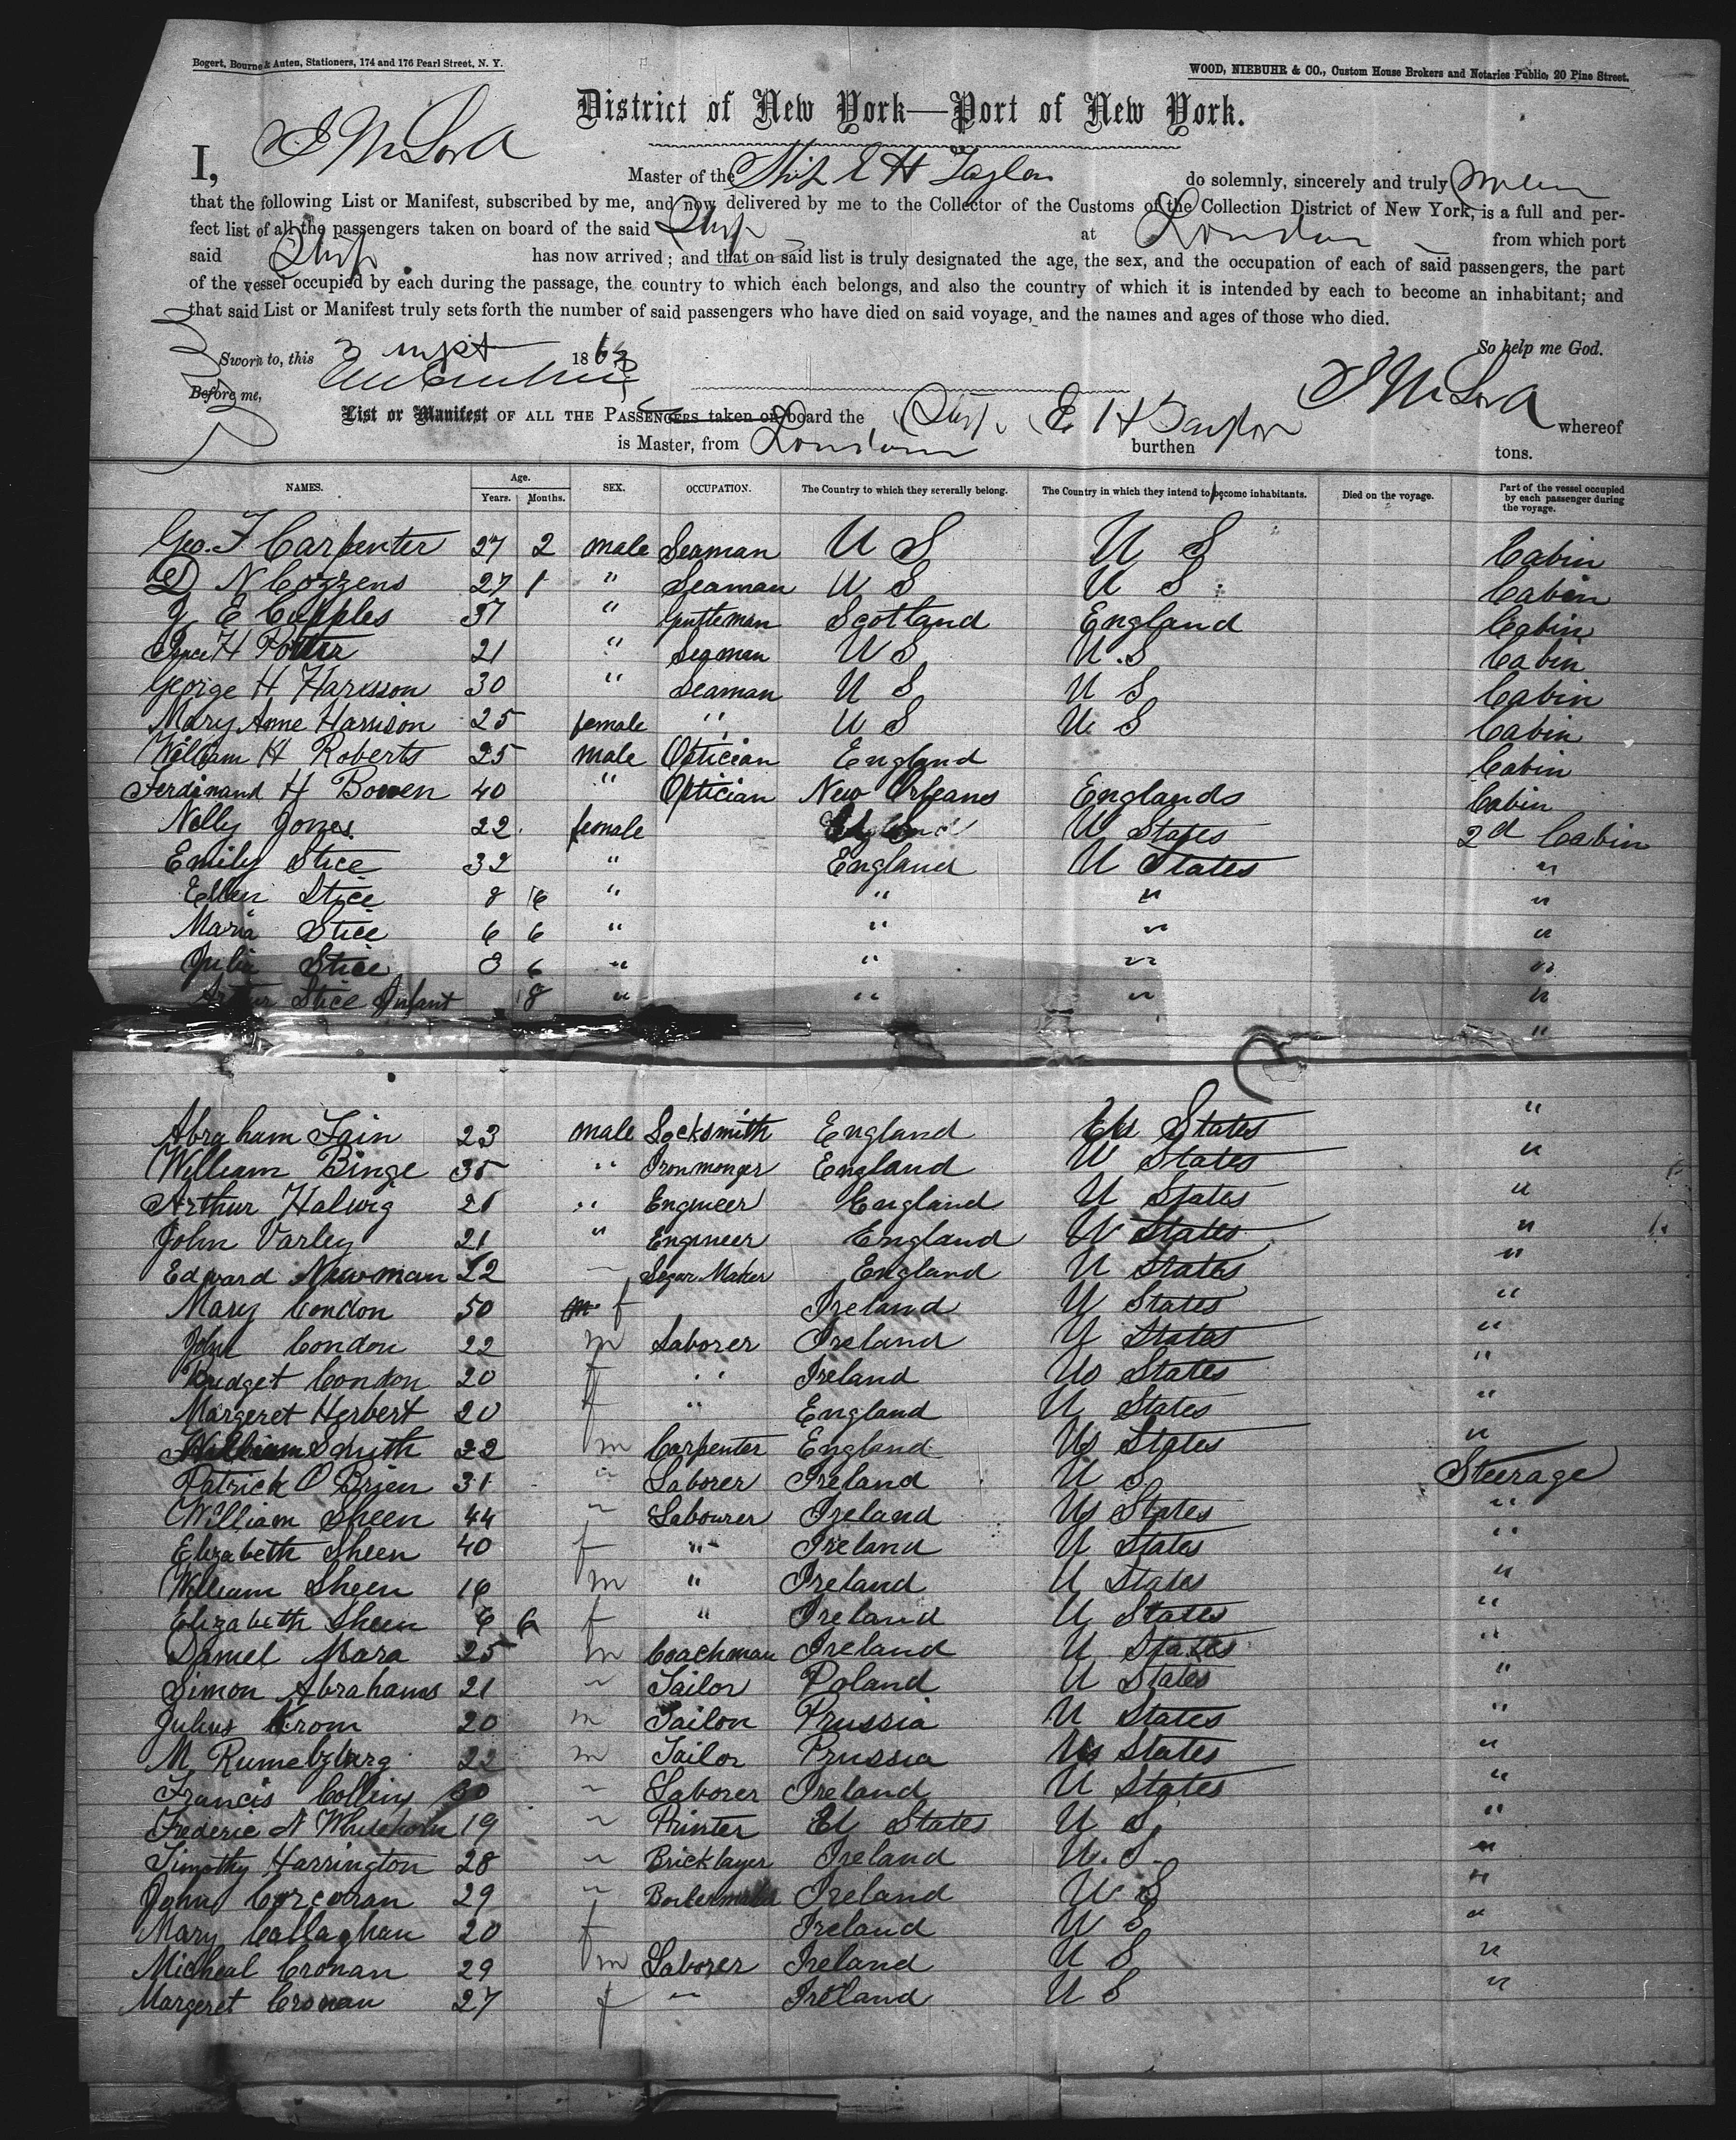 Bogert, Bourne & Auten, Stationers, 174 and 176 Pearl Street, N. Y.
WOOD, NIEBUHR & CO., Custom House Brokers and Notaries Public, 20 Pine Street.
District of New York—Port of New York.
I, Master of the Ship E H Taylor do solemnly, sincerely and truly
that the following List or Manifest, subscribed by me, and now delivered by me to the Collector of the Customs of the Collection District of New York, is a full and per-
fect list of all the passengers taken on board of the said Ship at London from which port
said Ship has now arrived; and that on said list is truly designated the age, the sex, and the occupation of each of said passengers, the part
of the vessel occupied by each during the passage, the country to which each belongs, and also the country of which it is intended by each to become an inhabitant; and
that said List or Manifest truly sets forth the number of said passengers who have died on said voyage, and the names and ages of those who died.
So help me God.
Sworn to, this 186
Before me,
List or Manifest OF ALL THE PASSENGERS taken on board the Ship E H Taylor whereof
is Master, from London burthen tons.
NAMES. Age. Years. Months. SEX. OCCUPATION. The Country to which they severally belong. The Country in which they intend to become inhabitants. Died on the voyage. Part of the vessel occupied by each passenger during the voyage.
Geo. F Carpenter 27 2 male Seaman U S U S Cabin
D N Cozzens 27 1 " Seaman U S U S Cabin
E Cupples 37 " Gentleman Scotland England Cabin
H Potter 21 " Seaman U S U.S Cabin
George H Harisson 30 " Seaman U S U S Cabin
Mary Anne Harrison 25 female " U S U S Cabin
William H Roberts 25 male Optician England Cabin
Ferdinand H Bowen 40 " Optician New Orleans England Cabin
Nelly Jones 22 female England U States 2d Cabin
Emily Stice 32 " England U States "
Ellen Stice 8 " " " "
Maria Stice 6 6 " " " "
Julia Stice 3 6 " " " "
Stice Infant 8 " " " "
"
Abraham Fain 23 male Locksmith England U States "
William Binge 35 " Ironmonger England U States "
Arthur Halwig 21 " Engineer England U States "
John Varley 21 " Engineer England U States "
Edward Newman 22 " Segar Maker England U States "
Mary Condon 50 f Ireland U States "
John Condon 22 m Laborer Ireland U States "
Bridget Condon 20 f " Ireland U States "
Margeret Herbert 20 f " England U States "
William Smith 22 m Carpenter England U States "
Patrick O Brien 31 " Laborer Ireland U S Steerage
William Sheen 44 " Labourer Ireland U States "
Elizabeth Sheen 40 f " Ireland U States "
William Sheen 16 m " Ireland U States "
Elizabeth Sheen 6 6 f " Ireland U States "
Daniel Mara 25 m Coachman Ireland U States "
Simon Abrahams 21 " Tailor Poland U States "
Julius Krom 20 m Tailor Prussia U States "
M Rumelzburg 22 m Tailor Prussia U States "
Francis Collins " Laborer Ireland U States "
Frederic N Whitehorn 19 " Printer U States U S "
Timothy Harrington 28 " Bricklayer Ireland U.S. "
John Corcoran 29 " Boilermaker Ireland U S "
Mary Callaghan 20 f Ireland U S "
Micheal Cronan 29 m Laborer Ireland U S "
Margeret Cronan 27 f " Ireland U S "